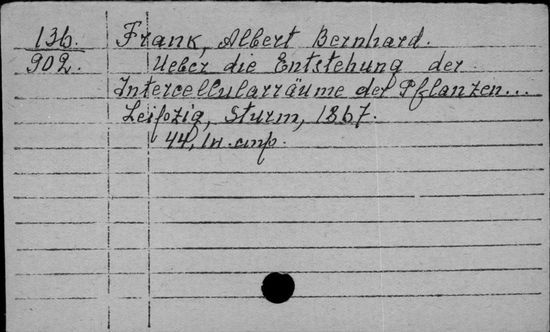 136. Frank, Albert Bernhard.
902. Ueber die Entstehung der
Intercellularräume der Pflanzen...
Leipzig, Sturm, 1867.
44, 1n. cmp.